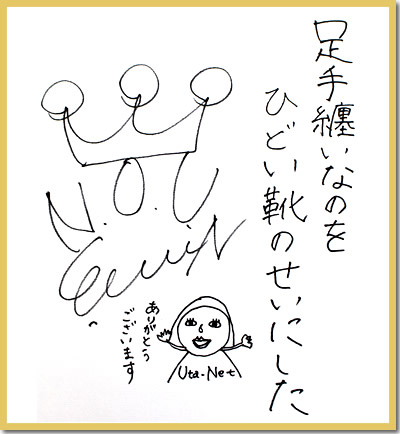 足手纏いなのを
ひどい靴のせいにした
N.O.C
ありがとう
ございます
Uta-Net